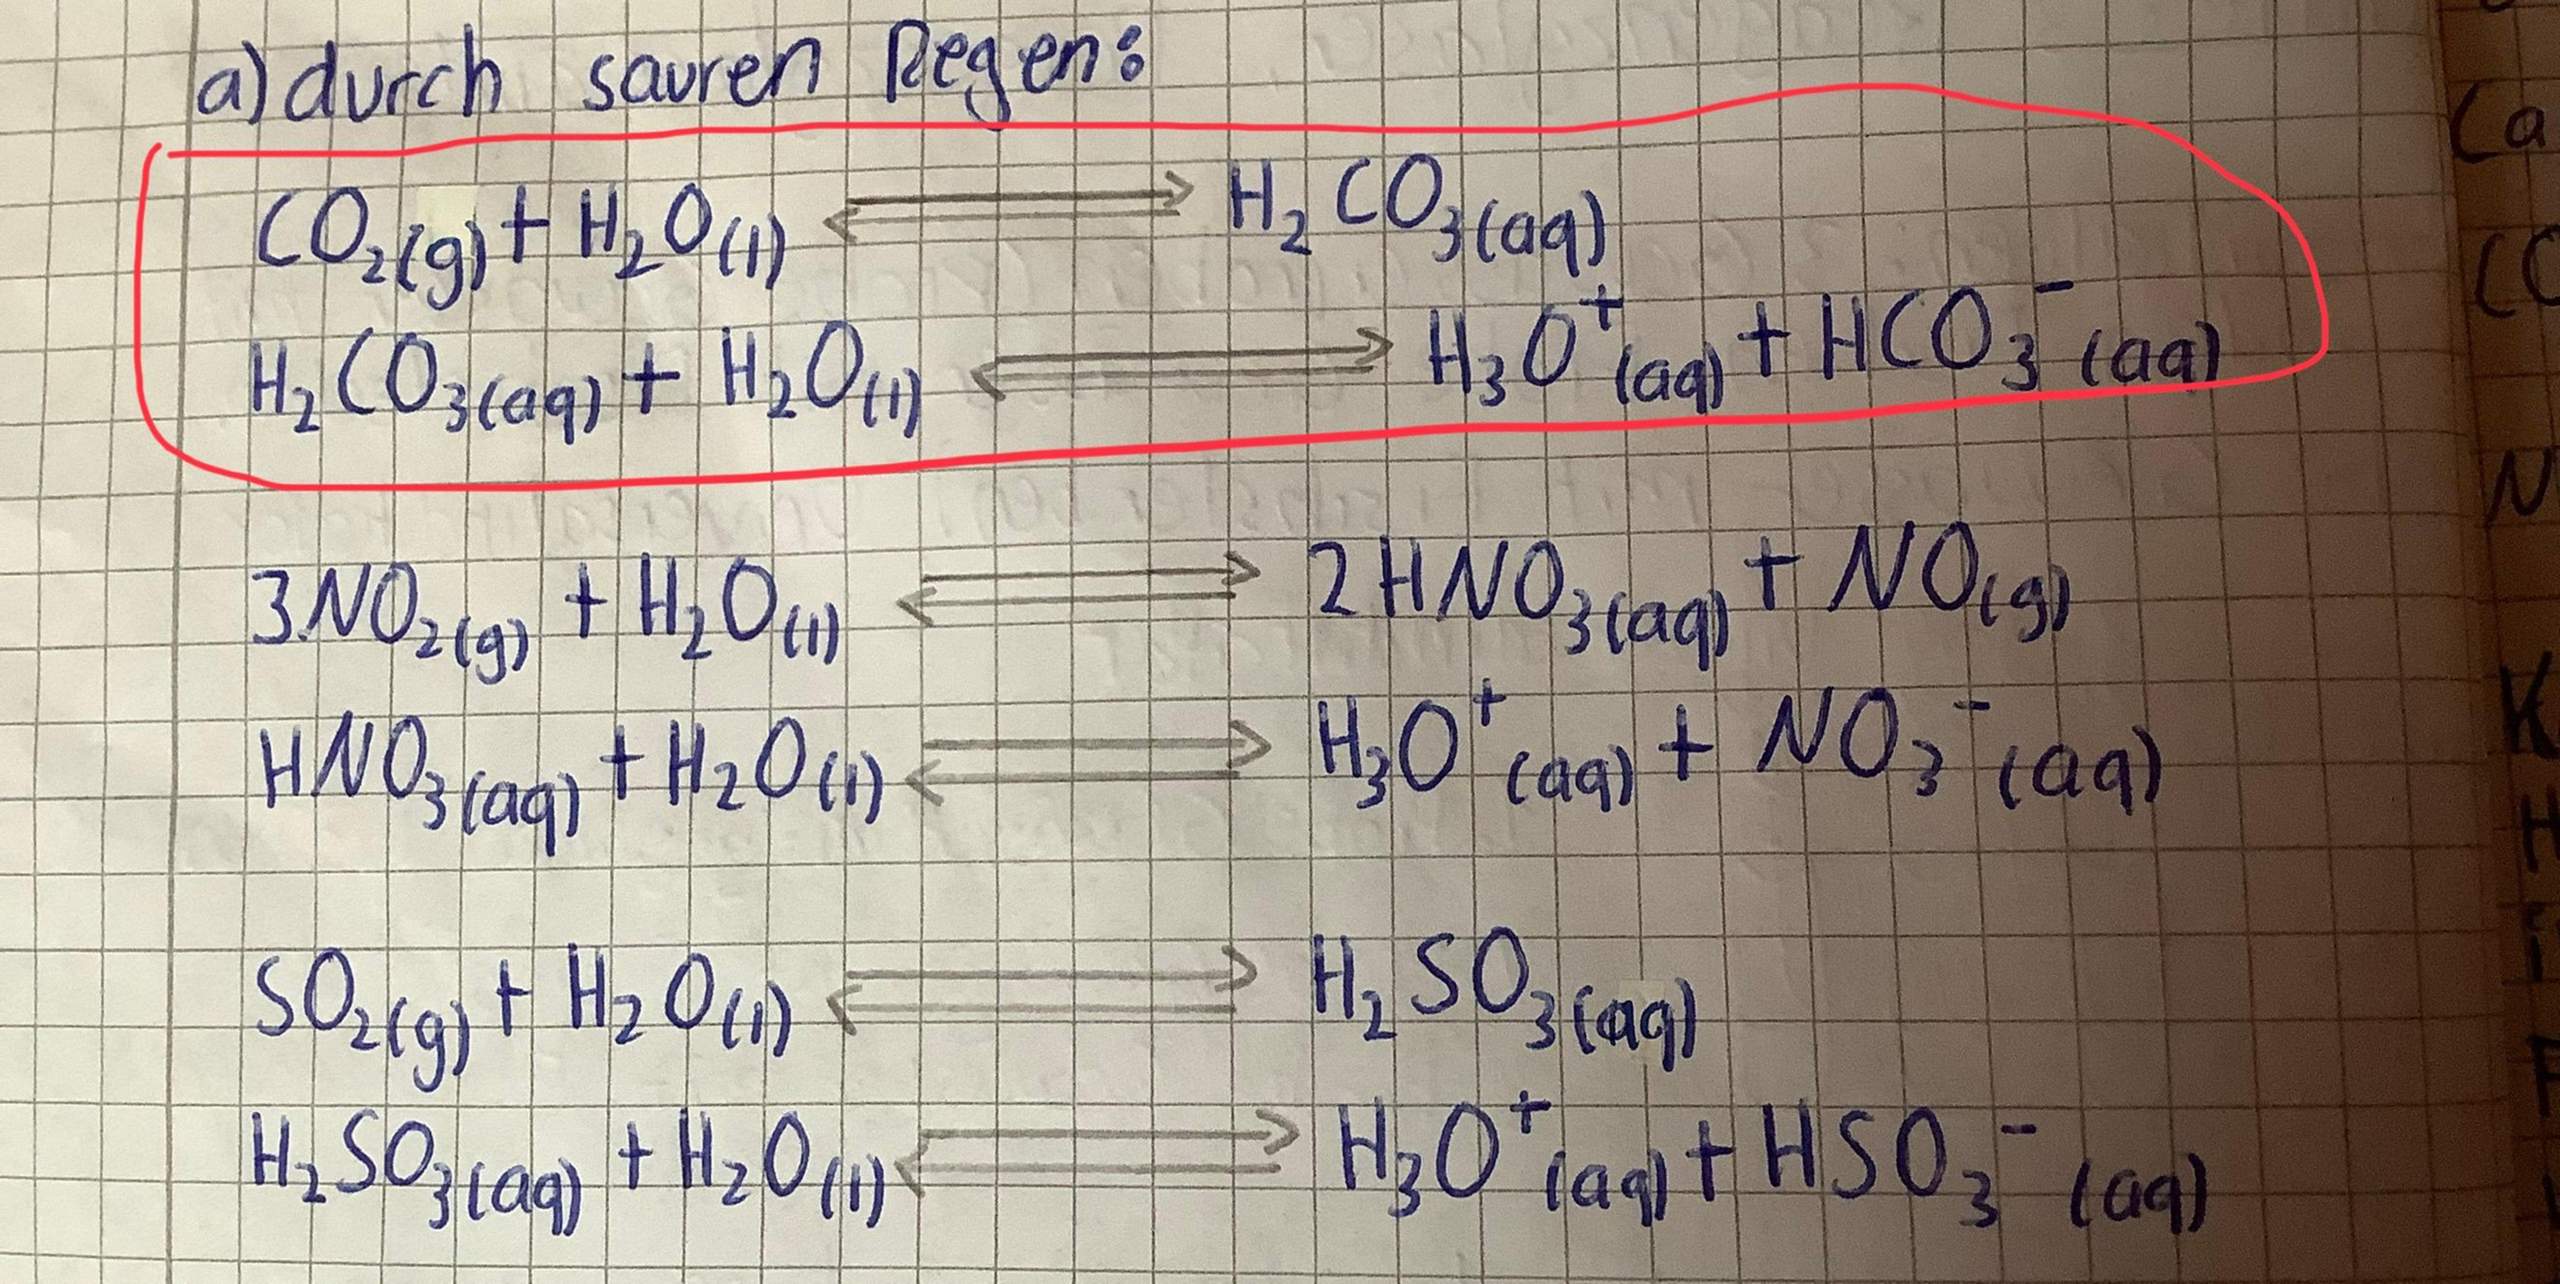 a) durch sauren Regen:
CO₂(g) + H₂O(l) ⇌ H₂CO₃(aq)
H₂CO₃(aq) + H₂O(l) ⇌ H₃O⁺(aq) + HCO₃⁻(aq)
3NO₂(g) + H₂O(l) ⇌ 2HNO₃(aq) + NO(g)
HNO₃(aq) + H₂O(l) ⇌ H₃O⁺(aq) + NO₃⁻(aq)
SO₂(g) + H₂O(l) ⇌ H₂SO₃(aq)
H₂SO₃(aq) + H₂O(l) ⇌ H₃O⁺(aq) + HSO₃⁻(aq)